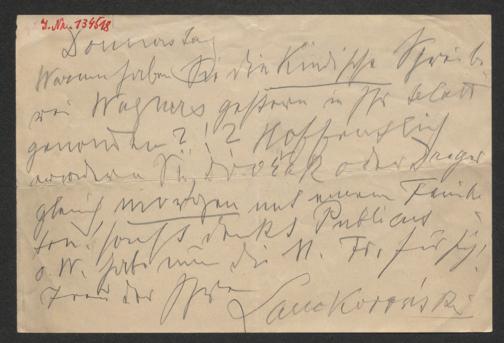 J. Nr. 134518
Donnerstag
Warum haben Sie die kindische Schreibe-
rei Wagners gestern in Ihr Blatt
genommen ? ! ? Hoffentlich
Sie Dvořák oder
gleich morgen mit einem Feuille-
ton. Sonst denkt Publicus
o. W. habe nun die N. Fr. für sich.
Ihre
Lanckoroński